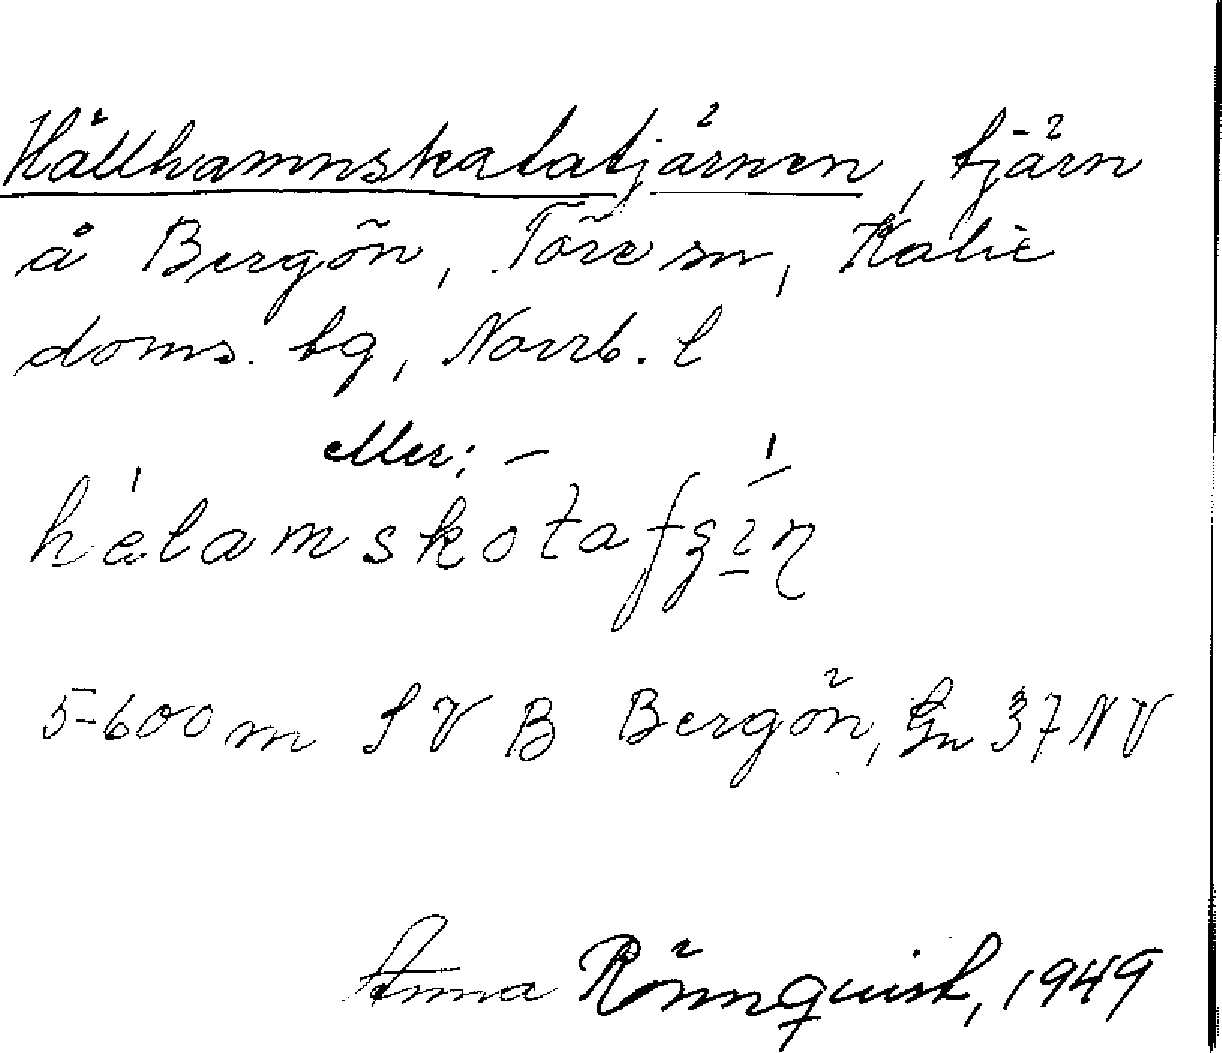 Hällhamnskatatjärnen, tjärn
å Bergön, Töre sn, Kalix
doms. tg, Norrb. l
eller: –
hèlamskotafʒín
5-600 m SV B Bergön, Gn 37 NV
Anna Rönnquist, 1949